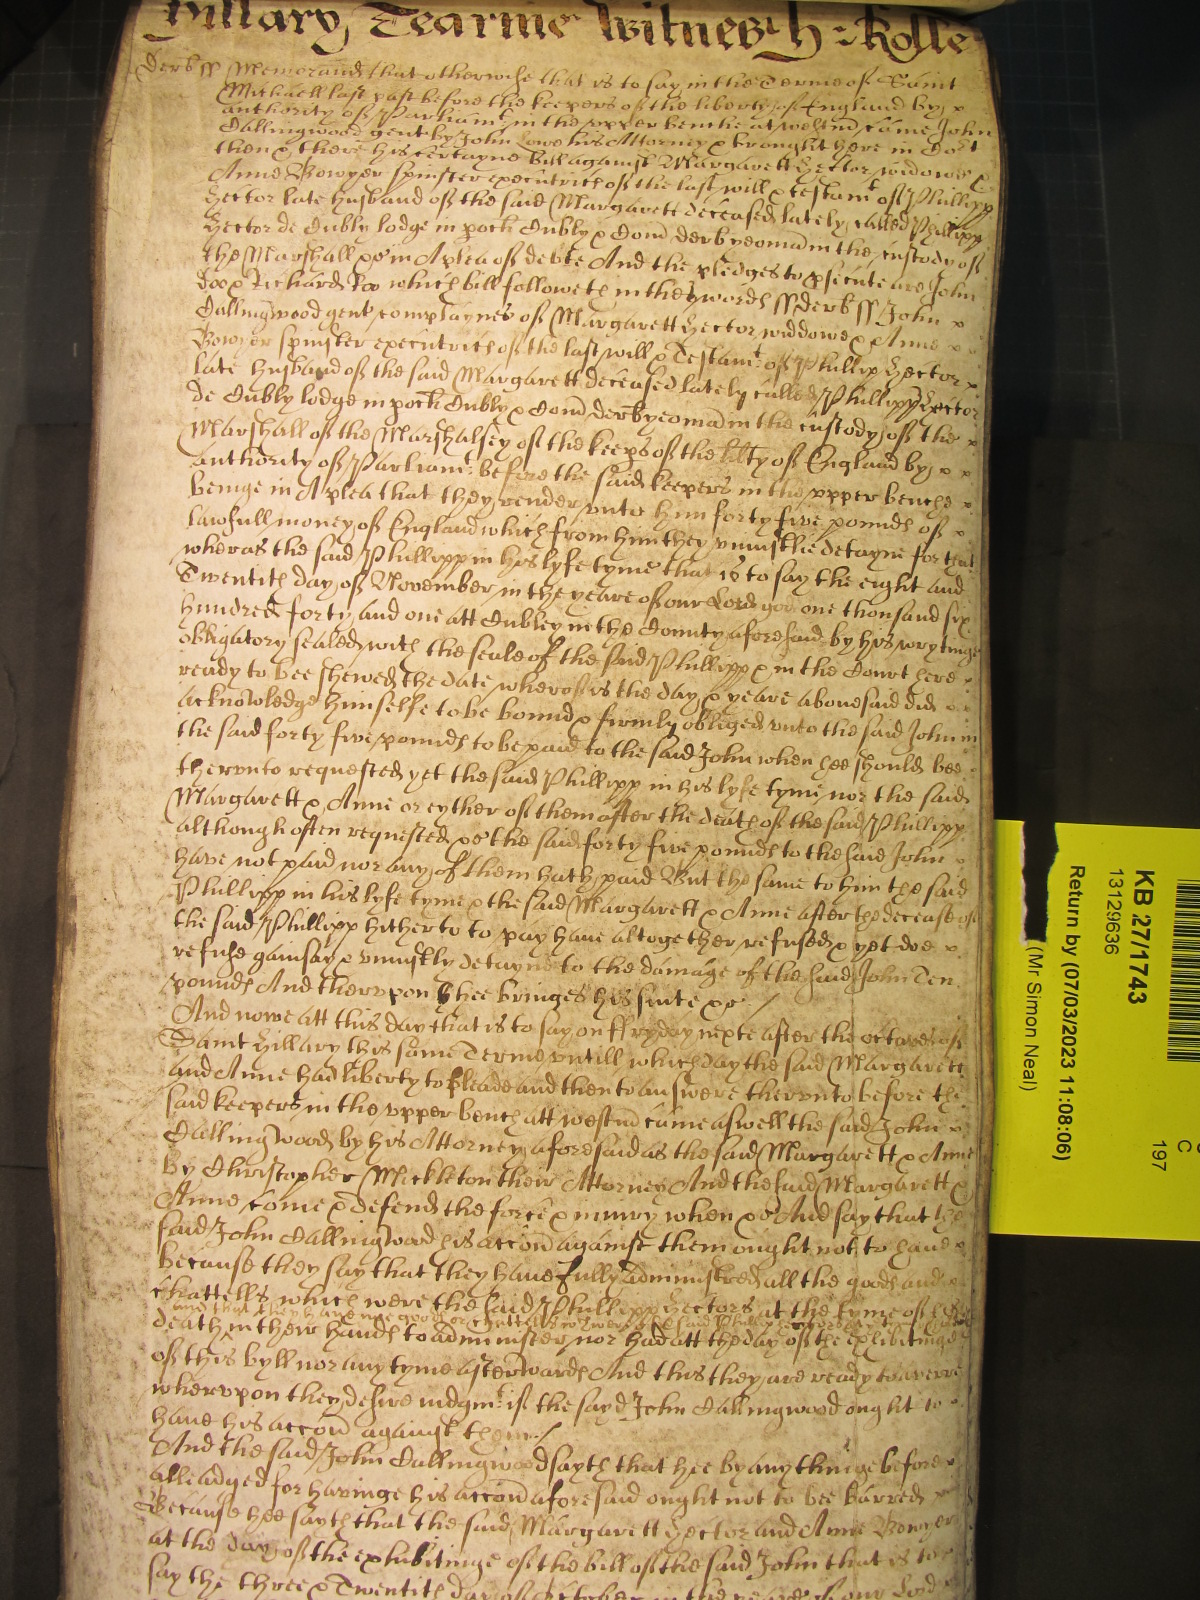 Hillary Tearme Witnes th: Rolle
Derb ss Memorand that otherwise that is to say in the Terme of Saint
Michaell last past before the keepers of the liberty of England by x
authority of Parliamt in the upper benche at Westm came John
Dallingwood gent by John Lowe his Attorney & brought here in Cort
then & there his certayne bill against Margarett Hector widdowe &
Anne Bowyer spinster executrices of the last will & testamt of Phillipp
Hector late husband of the said Margarett deceased lately called Phillipp
Hector de Cubly lodge in poch Cubly & Com derb yeoman in the custody of
the Marshall &c in A plea of debte And the pledges to psecute are John
Doo & Richard Roo which bill followeth in these words ss derb ss John x
Dallingwood gent complaynes of Margarett Hector widdowe & Anne x
Bowyer spinster executrices of the last will & Testamt of Phillip Hector x
late husband of the said Margarett deceased lately called Phillipp Hector
de Cubly lodge in poch Cubly & Com derb yeoman in the custody of the x
Marshall of the Marshalsey of the keeps of the libty of England by x x
authority of Parliamt: before the said keepers in the upper benche x
beinge in A plea that they render unto him forty five pounds of x
lawfull money of England which from him they uniustlie detayne for that
wheras the said Phillipp in his lyfe tyme that is to say the eight and
Twentith day of November in the yeare of our Lord god one thousand six
hundred forty and one att Cubley in the County aforesaid by his wrytinge
obligatory sealed with the seale of the said Phillipp & in the Court here
ready to bee shewed the date wherof is the day & yeare abovesaid did x
acknowledge himselfe to be bound & firmly obliged unto the said John in
the said forty five pounds to be paid to the said John when hee should bee
therunto requested yet the said Phillipp in his lyfe tyme nor the said
Margarett & Anne or eyther of them after the death of the said Phillipp
although often requested &c the said forty five pounds to the said John
have not paid nor any of them hath paid But the same to him the said
Phillipp in his lyfe tyme & the said Margarett & Anne after the decease of
the said Phillipp hitherto to pay have altogether refused & yet doe x
refuse gainsay & uniustly detayne to the damage of the said John Ten
pounds And therupon hee bringes his suite &c /
And nowe att this day that is to say on ffryday nexte after the octaves of
Saint Hillary this same Terme untill which day the said Margarett
and Anne had liberty to pleade and then to answere therunto before the
said keepers in the upper bench att westm came aswell the said John x
Dallingwood by his Attorney aforesaid as the said Margarett & Anne
by Christopher Mickleton their Attorney And the said Margarett &
Anne come & defend the force & iniury when &c And say that the
said John Dallingwood his accon against them ought not to have x
because they say that they have fully administred all the goods and
chattells which were the said Phillipp Hectors at the tyme of his
and that they have noe goods or chattells wch were the said Phillip Hectors at the tyme of his
death in their hands to administer nor had att the day of the exhibitinge
of this byll nor any tyme afterwards And this they are ready to averre
wherupon they desire iudgmt: if the sayd John Dallingwood ought to x
have his accon against them /
And the said John Dallingwood sayth that hee by any thinge before x
alleadged for havinge his accon aforesaid ought not to bee barred
Because hee sayth that the said Margarett Hector and Anne Bowyer
at the day of the exhibitinge of the bill of the said John that is to
say the three & Twentith day of October in the yeare of our Lord
KB 27/1743
13129636
Return by (07/03/2023 11:08:06)
(Mr Simon Neal)
197
C